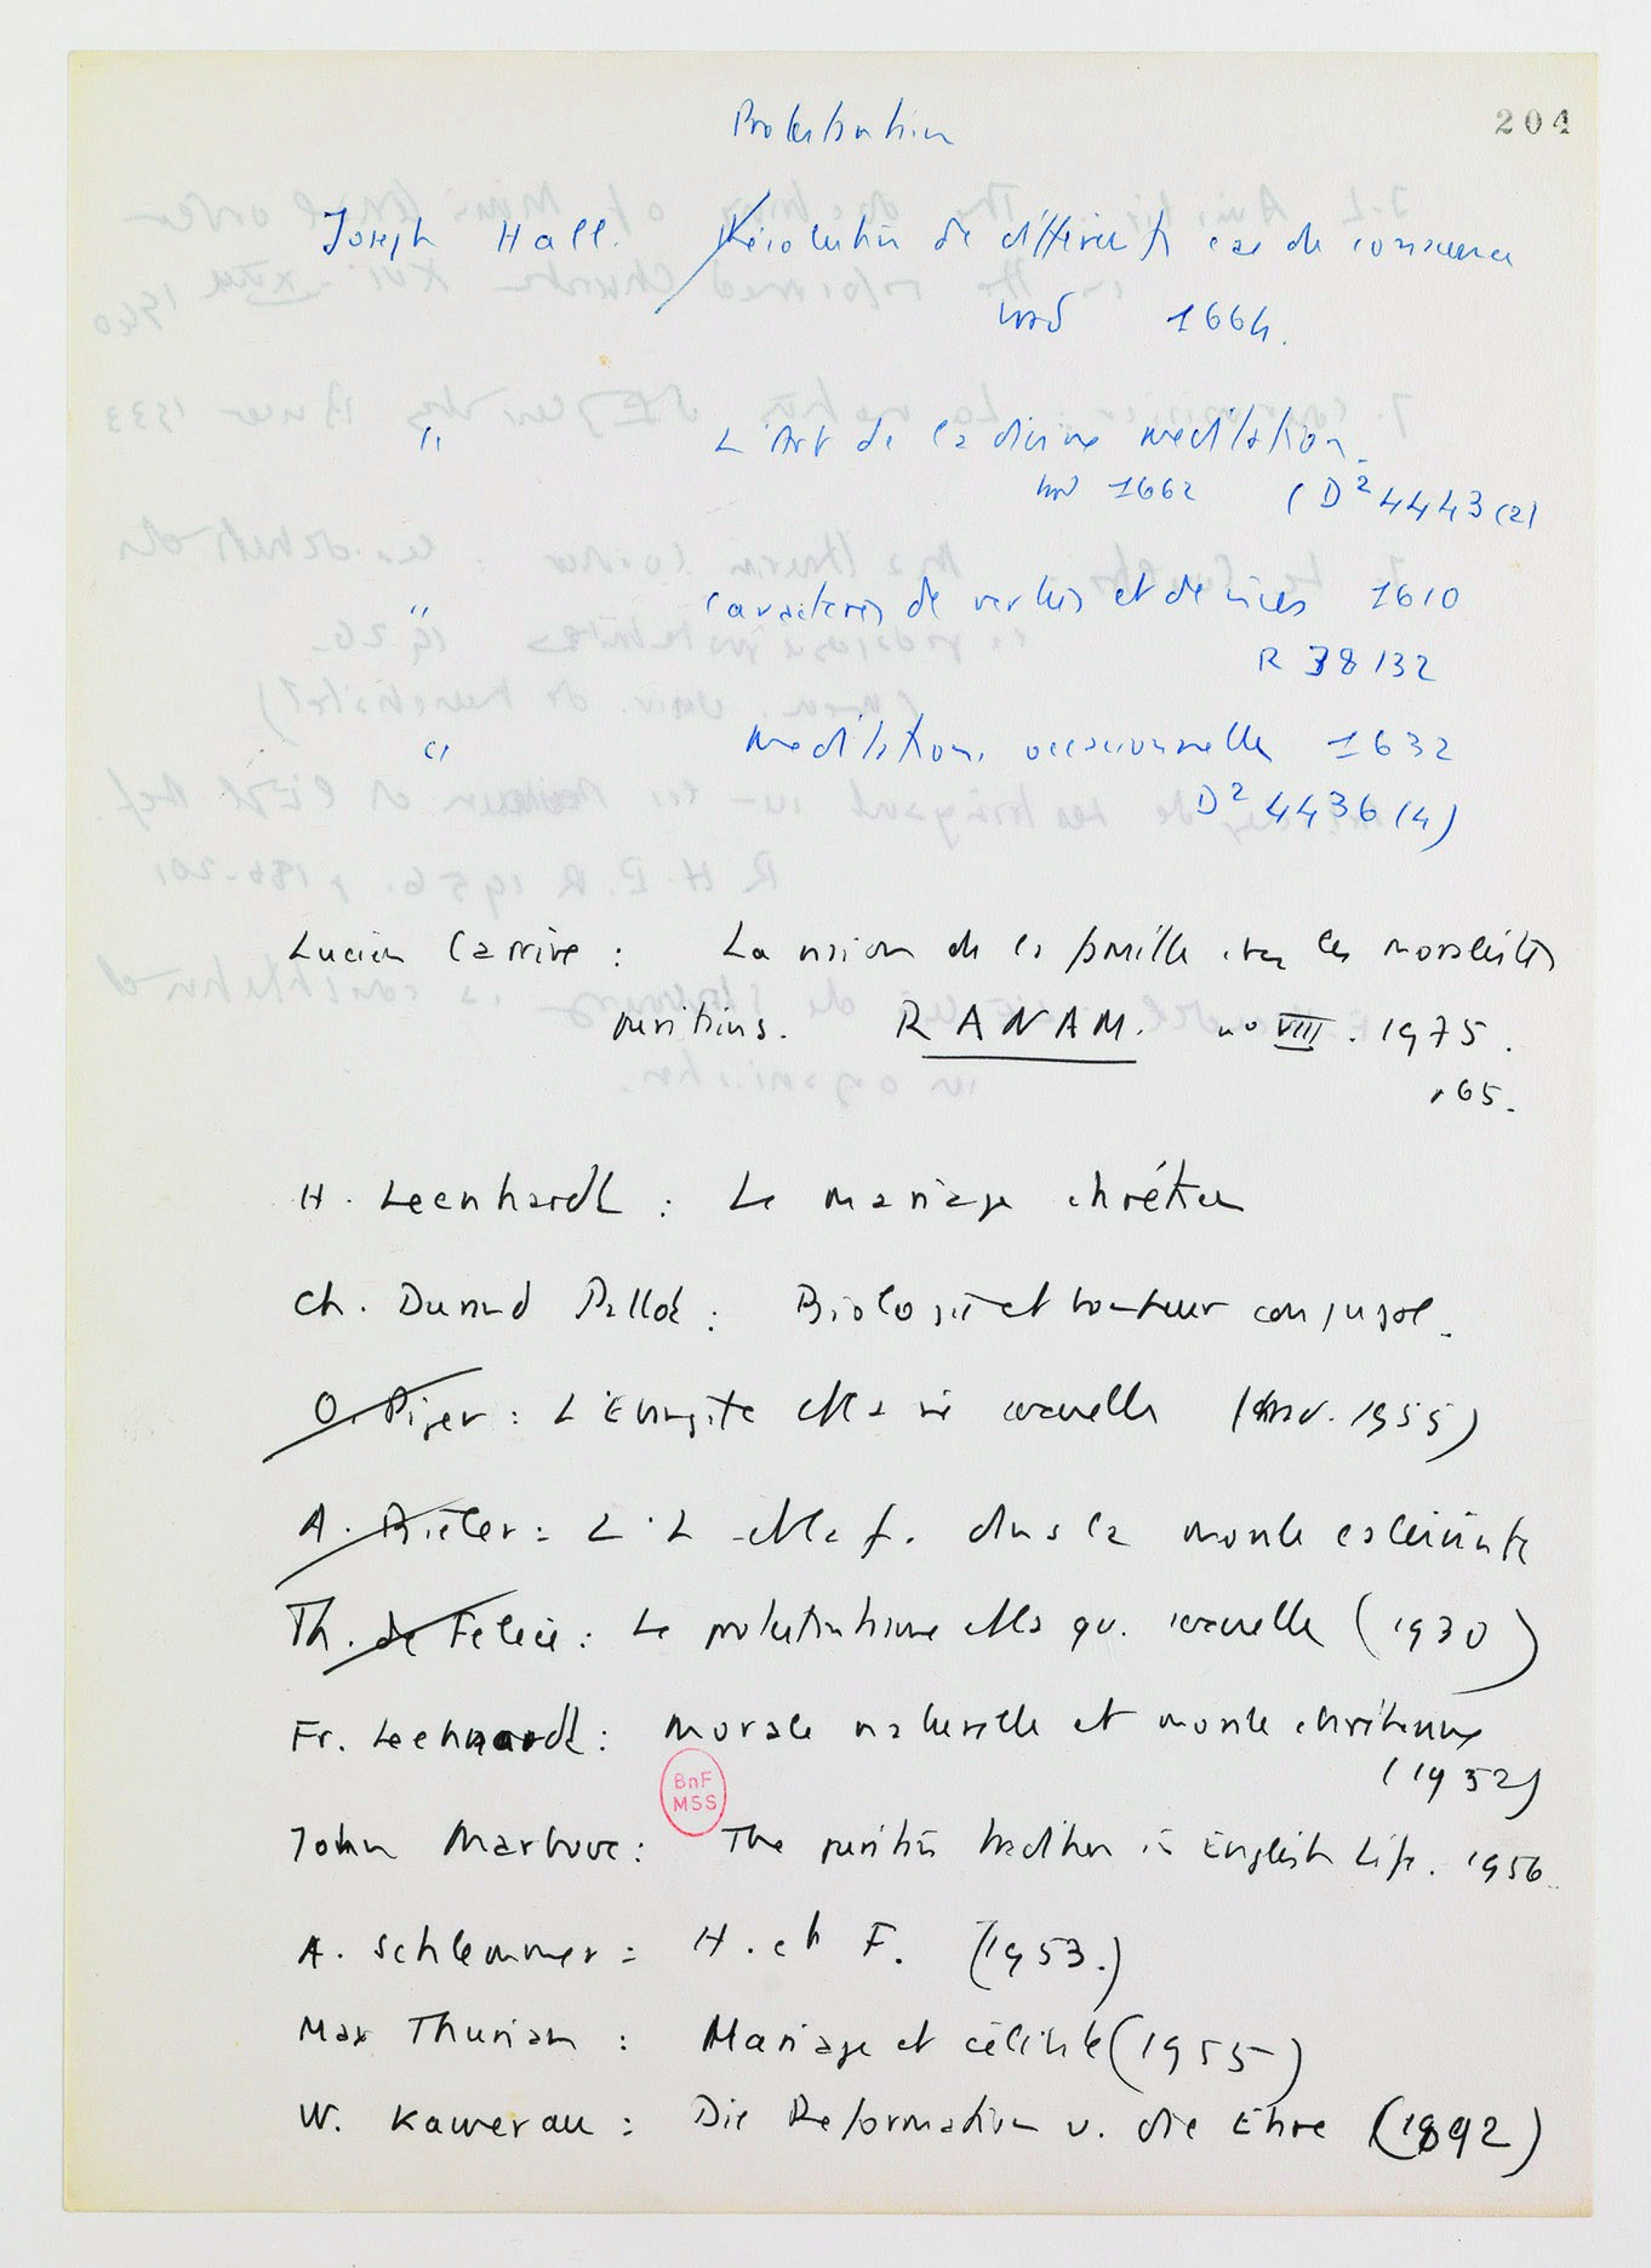 Protestantisme
204
Joseph Hall. Résolution de différents cas de conscience
trad 1664.
" L'Art de la divine meditation.
trad 1662 (D² 4443 (2)
" Caracteres de vertus et de vices 1610
R 38132
" Meditations occasionnelles 1632
D² 4436 (4)
Lucien Carrive : La vision de la famille chez les moralistes
puritains. RANAM. no VIII. 1975.
p 65.
H. Leenhardt : Le mariage chrétien
Ch. Durand Pallot : Biologie et bonheur conjugal.
O. Piper : L'Evangile et la vie sexuelle (trad. 1955)
A. Biéler : L'H et la f. dans la morale calviniste
Th. de Felice : Le protestantisme et la qu. sexuelle (1930)
Fr. Leenhardt : Morale naturelle et morale chrétienne
(1952)
John Marlowe : The puritan tradition in English Life. 1956.
BnF
MSS
A. Schlemmer : H. et F. (1953.)
Max Thurian : Mariage et célibat (1955)
W. Kawerau : Die Reformation u. die Ehre (1892)